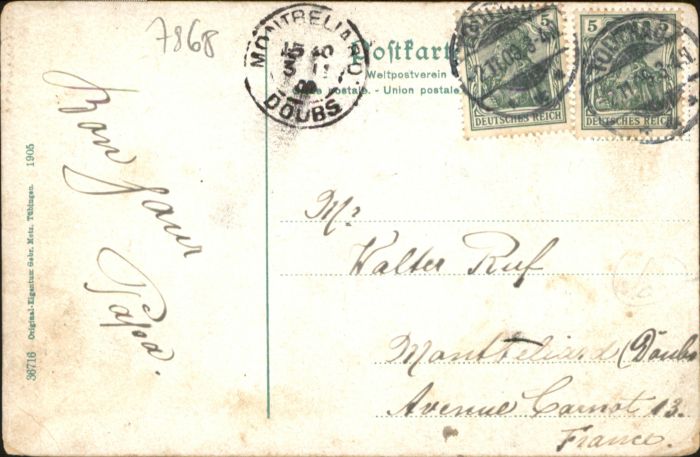 7868
Postkarte
Weltpostverein
Carte postale. - Union postale
MONTBELIARD
15 40
3 11
09
DOUBS
5
5
DEUTSCHES REICH
DEUTSCHES REICH
Bon jour
Papa.
Mr
Walter Ruf
Montbeliard (Doubs
Avenue Carnot 13.
France.
36716 Original-Eigentum Gebr. Metz, Tübingen. 1905